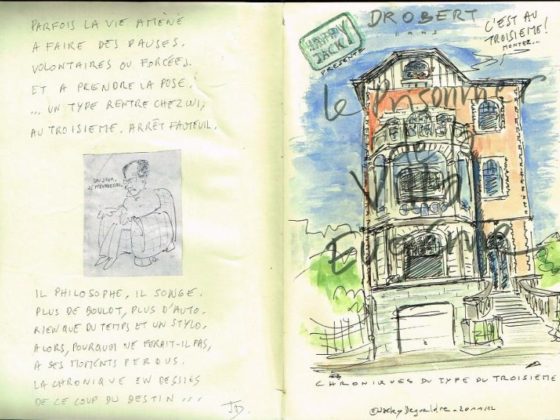 PARFOIS LA VIE AMÈNE
A FAIRE DES PAUSES.
VOLONTAIRES OU FORCÉES.
ET A PRENDRE LA POSE.
... UN TYPE RENTRE CHEZ LUI,
AU TROISIEME. ARRÊT FAUTEUIL.
IL PHILOSOPHE, IL SONGE.
PLUS DE BOULOT, PLUS D'AUTO.
RIEN QUE DU TEMPS ET UN STYLO,
ALORS, POURQUOI NE FERAIT-IL PAS,
A SES MOMENTS PERDUS.
LA CHRONIQUE EN DESSINS
DE CE COUP DU DESTIN ...
JD
DROBERT
DANS
JACK
PRÉSENTE
C'EST AU
TROISIEME!
MONTER...
Le Prisonnier
de
Villa
Eugénie
CHRONIQUES DU TYPE DU TROISIEME